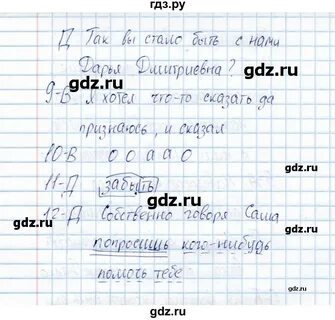 Д Так вы стало быть с нами
Дарья Дмитриевна?
9-В Я хотел что-то сказать да
признаюсь, и сказал
10-В о о а а о
11-Д забыть
12-Д Собственно говоря Саша
попросишь кого-нибудь
помочь тебе
gdz.ru
gdz.ru
gdz.ru
gdz.ru
gdz.ru
gdz.ru